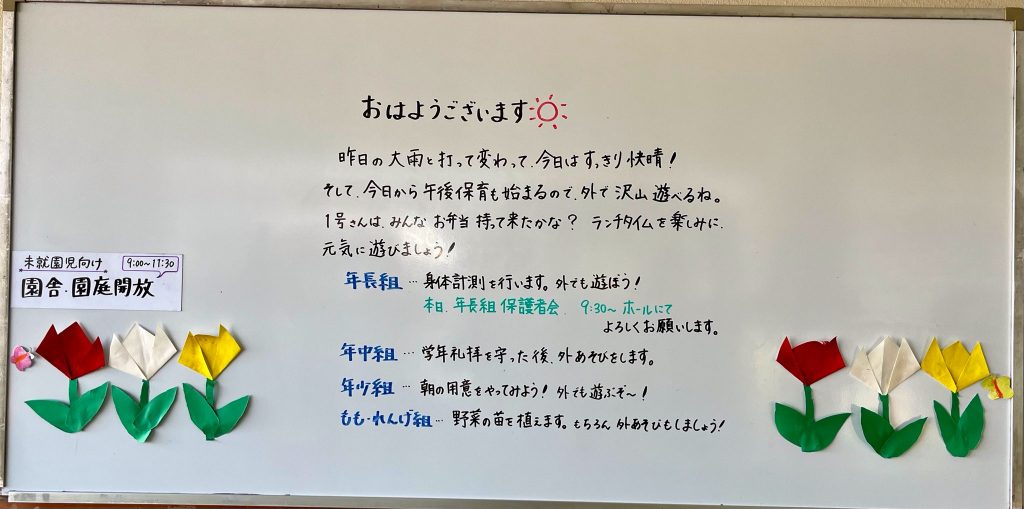 おはようございます
昨日の大雨と打って変わって、今日はすっきり快晴！
そして、今日から午後保育も始まるので、外で沢山遊べるね。
1号さんは、みんなお弁当持って来たかな？ ランチタイムを楽しみに、
元気に遊びましょう！
年長組…身体計測を行います。外でも遊ぼう！
本日、年長組保護者会 9:30～ ホールにて
よろしくお願いします。
年中組…学年礼拝を守った後、外あそびをします。
年少組…朝の用意をやってみよう！ 外でも遊ぶぞ～！
もも・れんげ組…野菜の苗を植えます。もちろん外あそびもしましょう！
未就園児向け 9:00～11:30
園舎・園庭開放